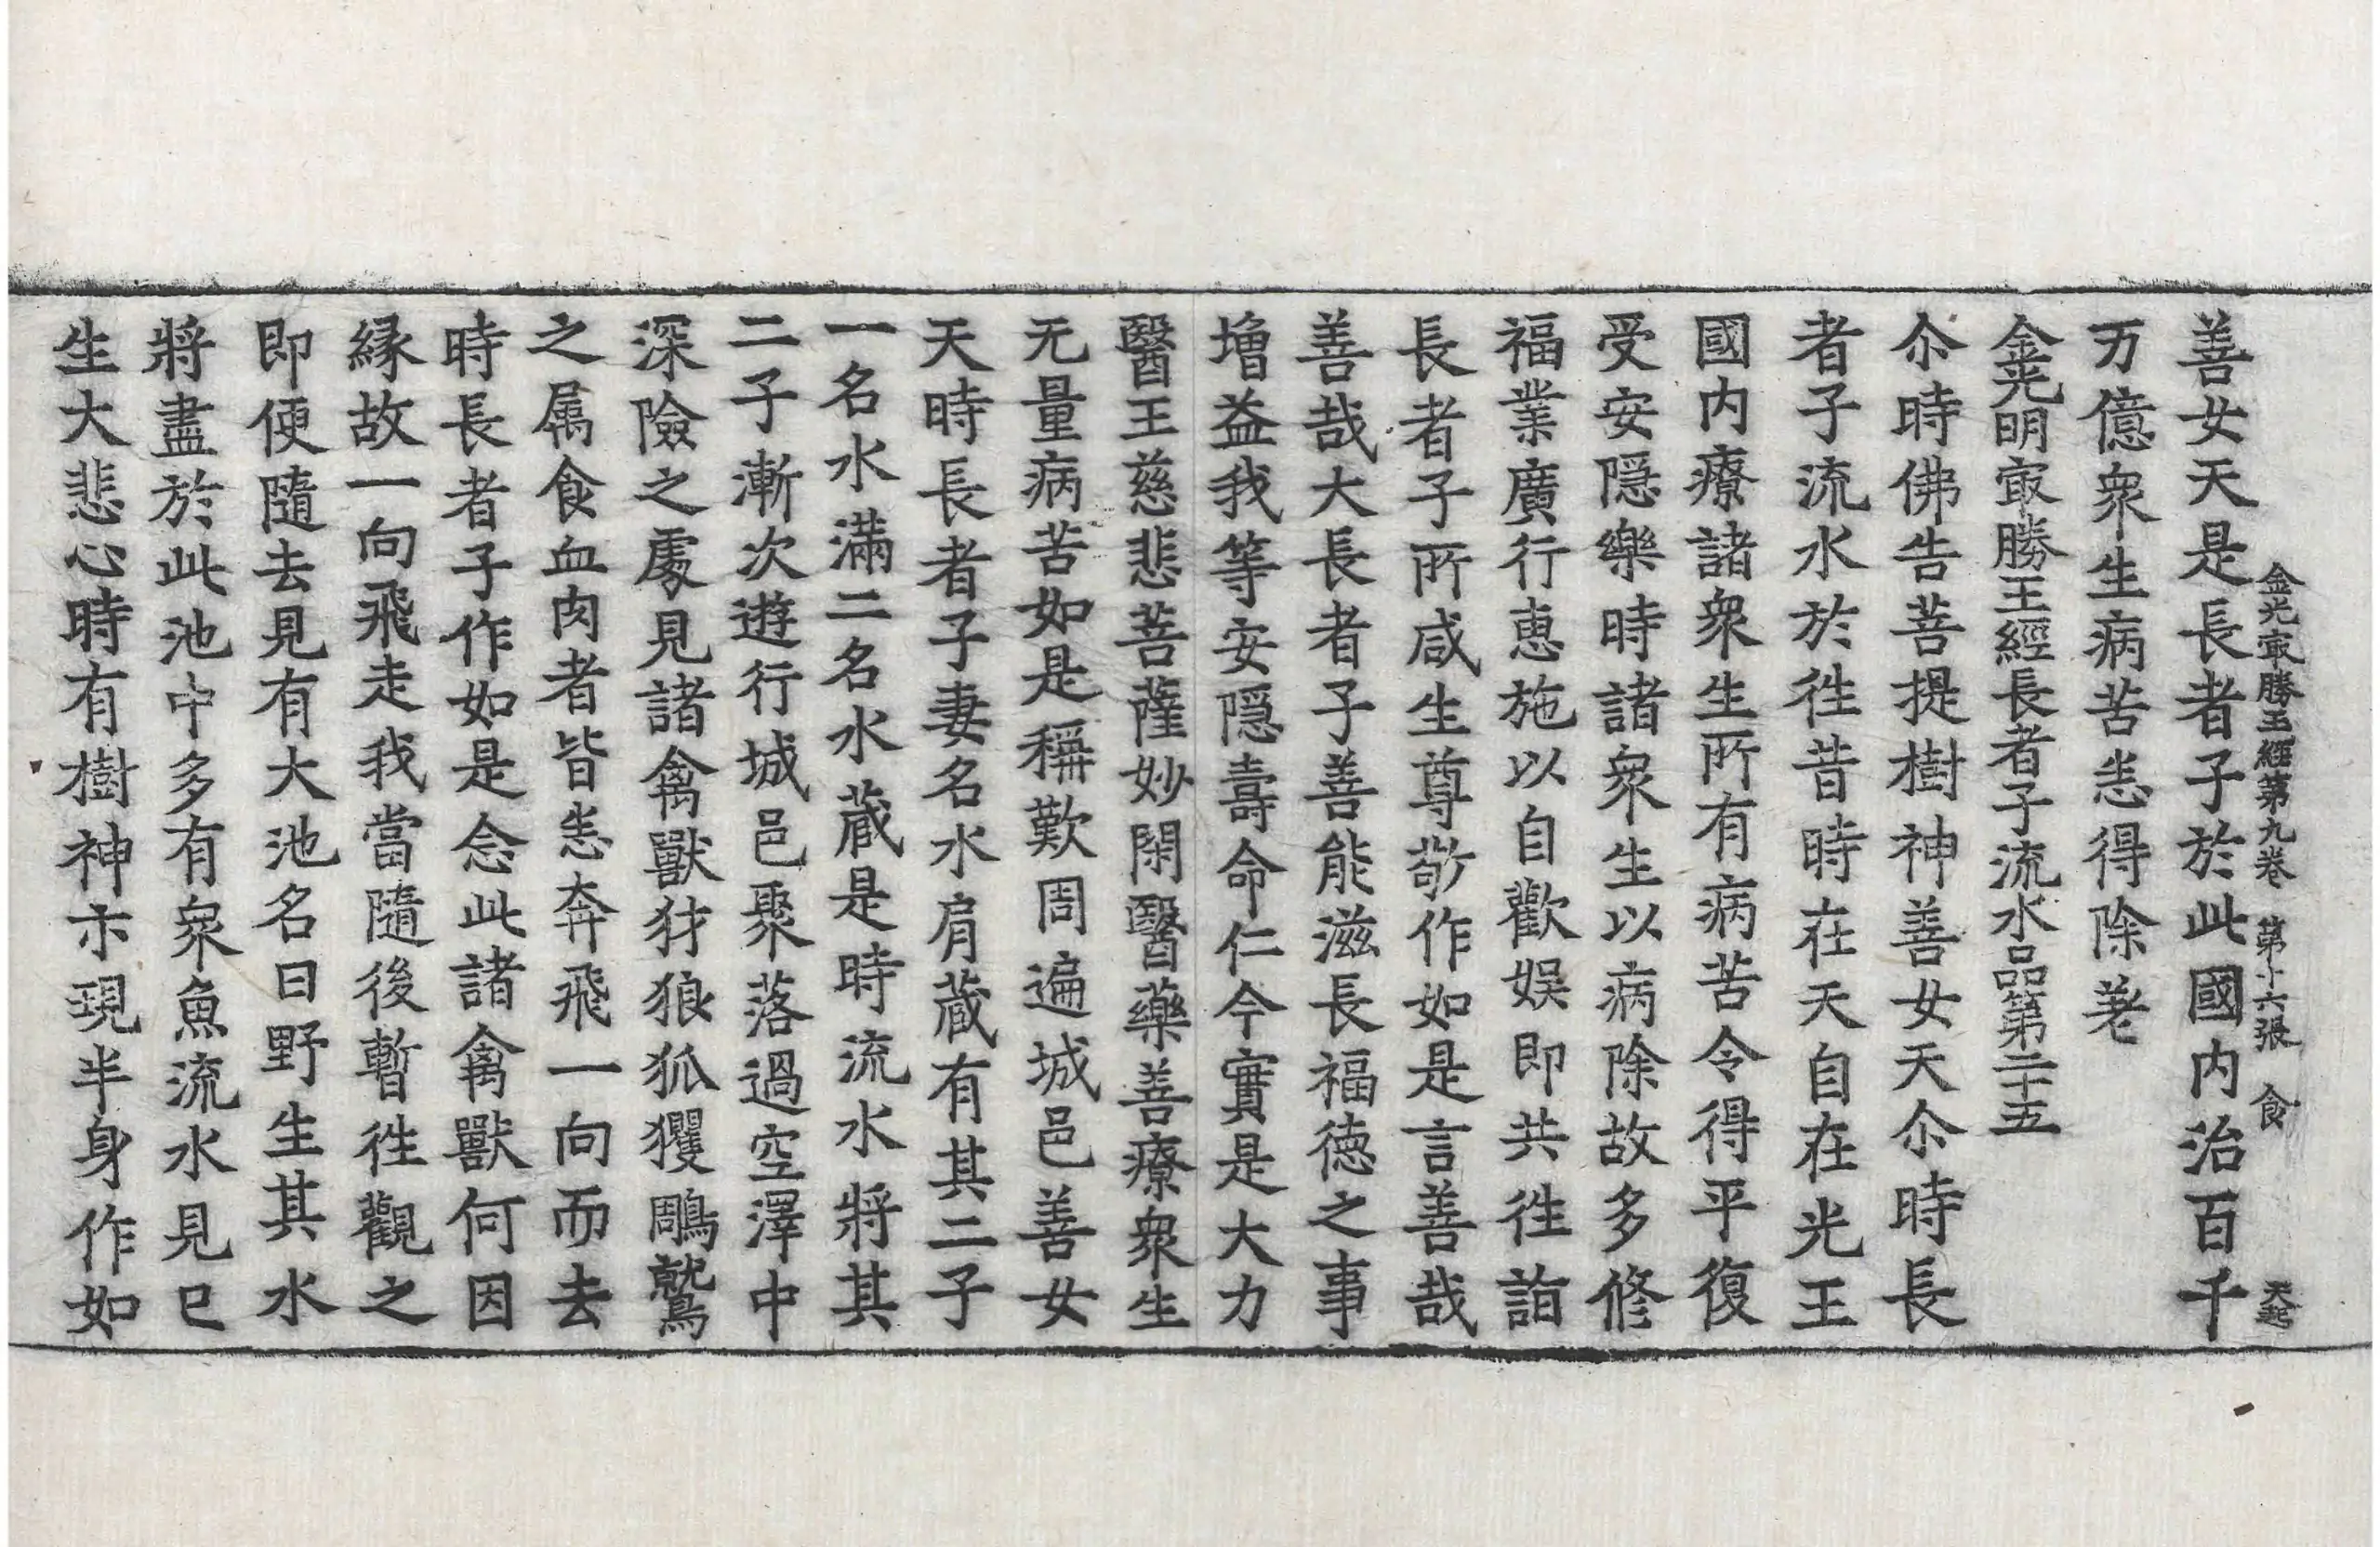 金光㝡勝王經第九卷 第十六張 食 天起
善女天是長者子於此國内治百千
万億衆生病苦恙得除差
金光明㝡勝王經長者子流水品第二十五
尒時佛告菩提樹神善女天尒時長
者子流水於徃昔時在天自在光王
國内療諸衆生所有病苦令得平復
受安隠樂時諸衆生以病除故多修
福業廣行恵施以自歡娱即共徃詣
長者子所咸生尊敬作如是言善哉
善哉大長者子善能滋長福徳之事
増益我等安隠壽命仁今實是大力
醫王慈悲菩薩妙閑醫藥善療衆生
无量病苦如是稱歎周遍城邑善女
天時長者子妻名水肩蔵有其二子
一名水滿二名水蔵是時流水將其
二子漸次遊行城邑聚落過空澤中
深險之處見諸禽獸犲狼狐玃鵰鷲
之属食血肉者皆恙奔飛一向而去
時長者子作如是念此諸禽獸何因
縁故一向飛走我當隨後暫徃觀之
即便隨去見有大池名曰野生其水
將盡於此池中多有衆魚流水見已
生大悲心時有樹神尒現半身作如